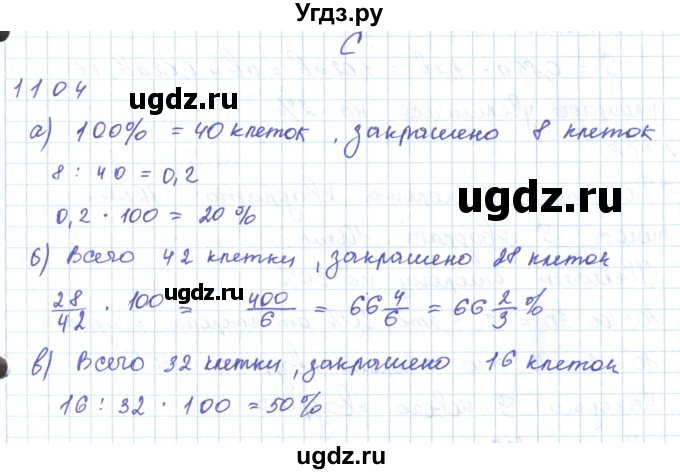 Угдз.ру
С
1104
ugdz.ru
а) 100% = 40 клеток, закрашено 8 клеток
8 : 40 = 0,2
ugdz.ru
0,2 · 100 = 20%
б) Всего 42 клетки, закрашено 28 клеток
28/42 · 100 = 400/6 = 66 4/6 = 66 2/3 %
ugdz.ru
в) Всего 32 клетки, закрашено 16 клеток
16 : 32 · 100 = 50%
ugdz.ru
ugdz.ru